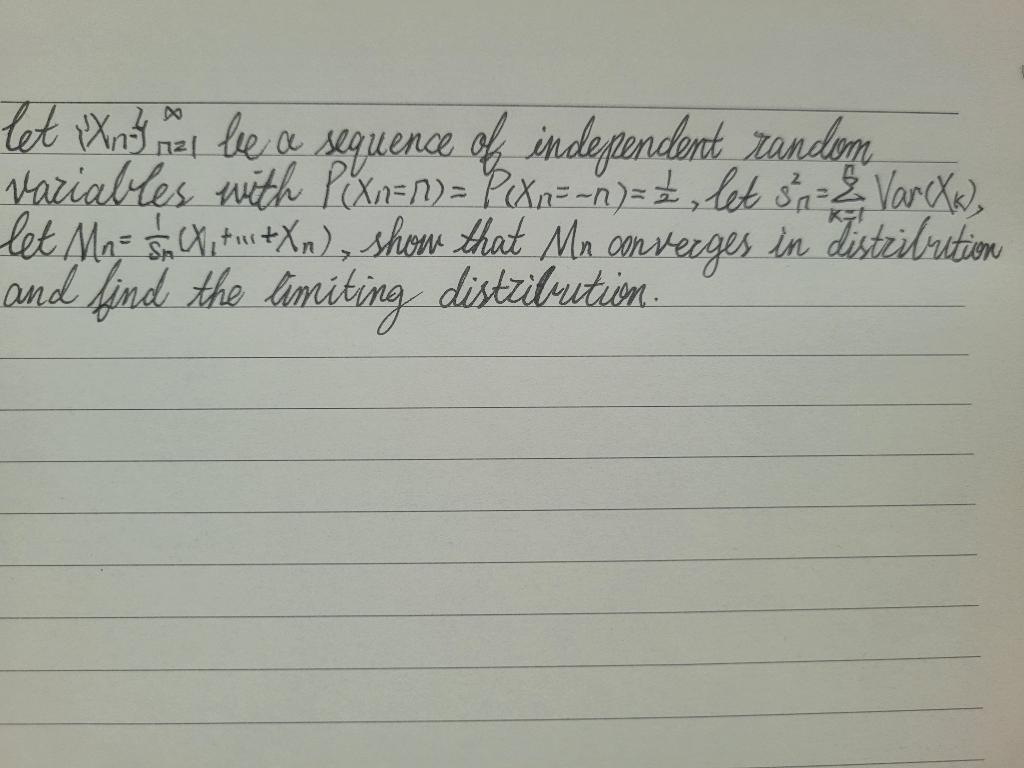 let {Xₙ}ₙ₌₁^∞ be a sequence of independent random
variables with P(Xₙ=n) = P(Xₙ=-n) = 1/2, let sₙ² = ∑ₖ₌₁ⁿ Var(Xₖ),
let Mₙ = 1/sₙ (X₁+...+Xₙ), show that Mₙ converges in distribution
and find the limiting distribution.